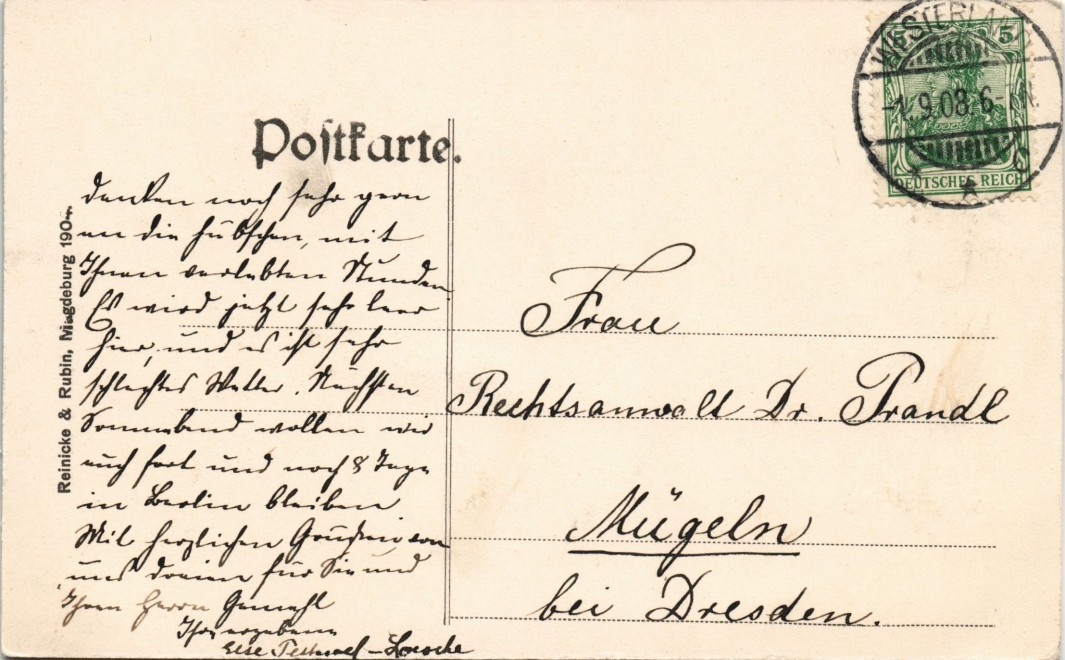 Postkarte.
WESTERLAND
-1.9.08.6-7N.
5 5
DEUTSCHES REICH
Reinicke & Rubin, Magdeburg 1904.
denken noch sehr gern
an die hübschen, mit
Ihnen verlebten Stunden
Es wird jetzt sehr leer
hier, und es ist sehr
schlechtes Wetter. Nächsten
Sonnabend wollen wir
auch fort und noch 8 Tage
in Berlin bleiben
Mit herzlichen Grüßen von
uns dreien für Sie und
Ihren Herrn Gemahl
Ihre ergebene
Else
Frau
Rechtsanwalt Dr. Prandl
Mügeln
bei Dresden.